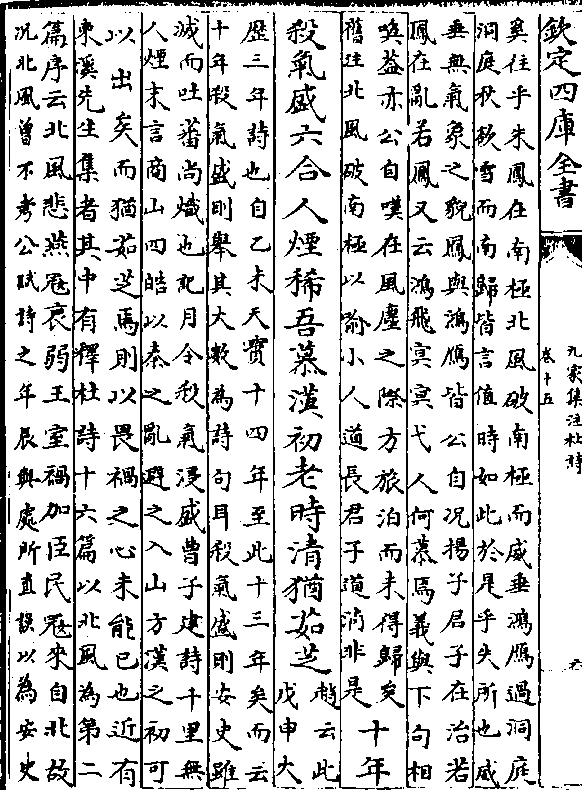 欽定四庫全書
九家集注杜詩
卷十五
奚往乎朱鳳在南極北風破南極而威垂鴻鴈過洞庭
洞庭秋欲雪而南歸皆言值時如此於是乎失所也威
垂無氣象之貌鳳與鴻鴈皆公自況揚子君子在治若
鳳在亂若鳳又云鴻飛冥冥弋人何慕焉義與下句相
喚蓋亦公自嘆在風塵之際方旅泊而未得歸矣
舊注北風破南極以喻小人道長君子道消非是
十年
殺氣盛六合人煙稀吾慕漢初老時清猶茹芝
趙云此
戊申大
歷三年詩也自乙未天寶十四年至此十三年矣而云
十年殺氣盛則舉其大數為詩句耳殺氣盛則安史雖
滅而吐蕃尚熾也記月令殺氣浸盛曹子建詩千里無
人煙末言商山四皓以秦之亂避之入山方漢之初可
以出矣而猶茹芝焉則以畏禍之心未能已也近有
東溪先生集者其中有釋杜詩十六篇以北風為第二
篇序云北風悲燕寇衰弱王室禍加臣民寇來自北故
況北風曾不考公賦詩之年辰與處所直誤以為安史